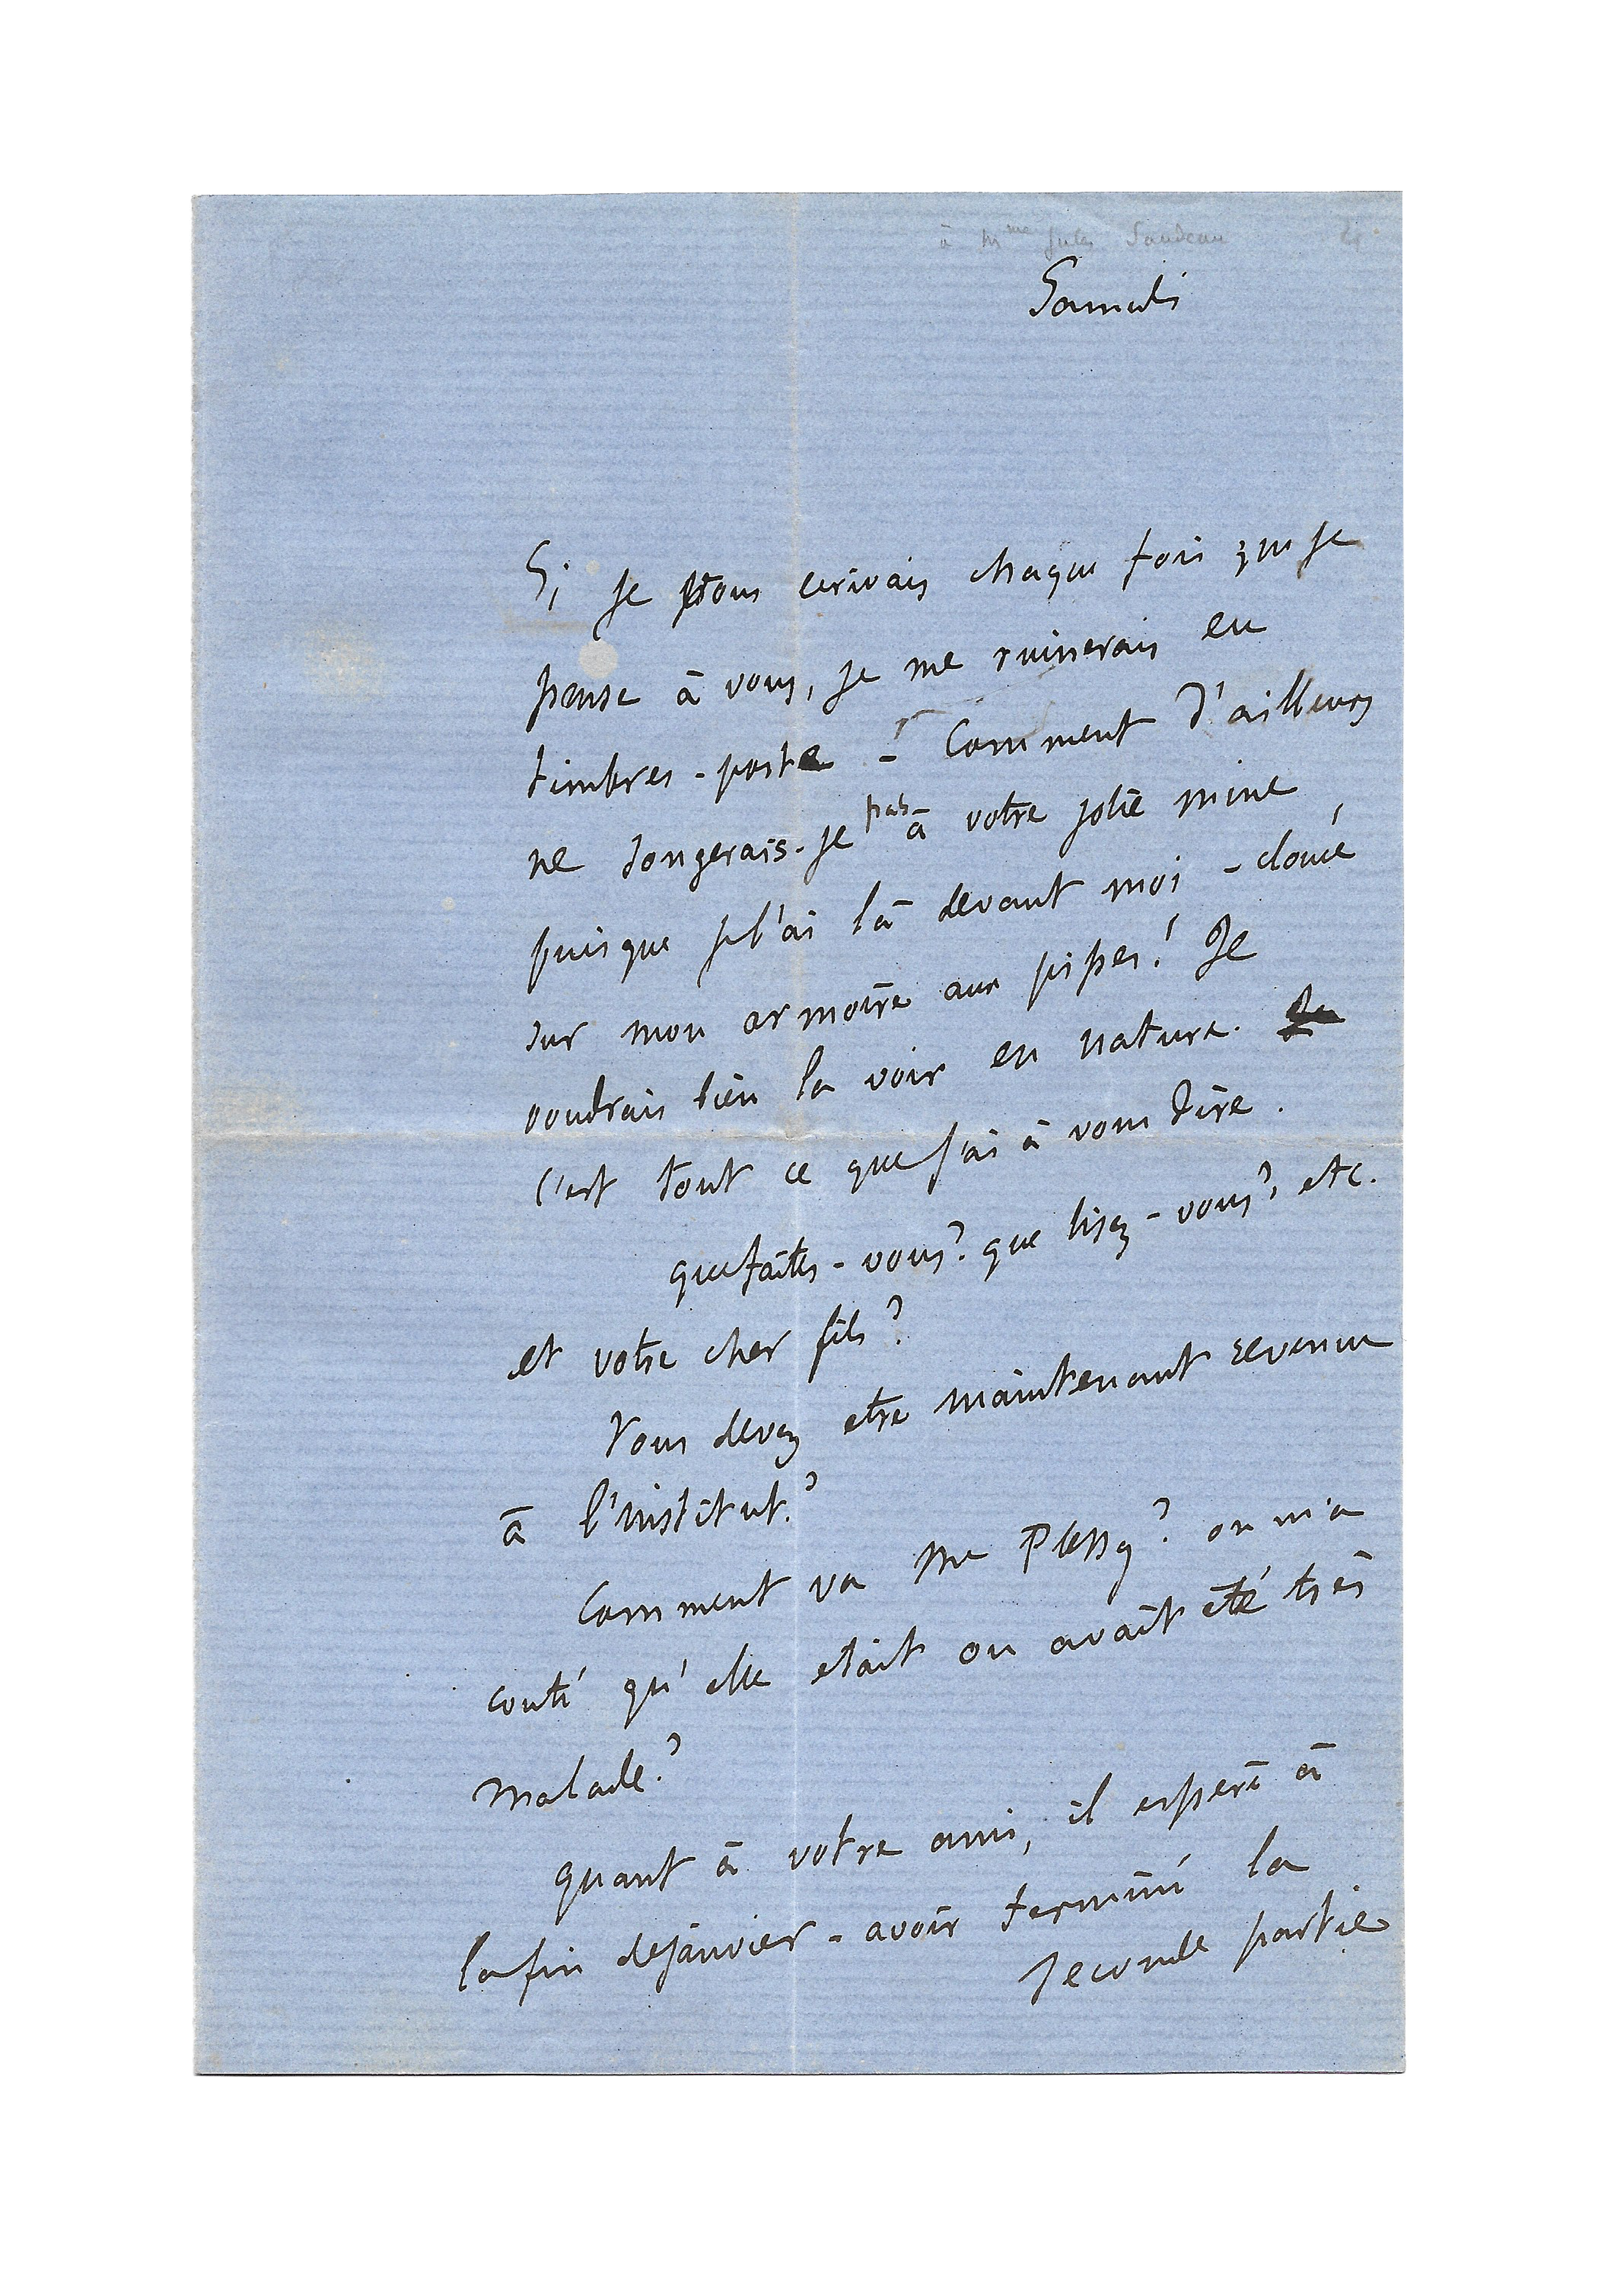 à Mme Jules Sandeau
Samedi
Si je vous ecrivais chaque fois que je
pense à vous, je me ruinerais en
timbres-poste - Comment d'ailleurs
ne songerais-je pas à votre jolie mine
puisque je l'ai là devant moi - cloué
sur mon armoire aux pipes! Je
voudrais bien la voir en nature.
C'est tout ce que j'ai à vous dire.
que faites-vous? que lisez-vous? etc.
et votre cher fils?
Vous devez etre maintenant revenue
à l'institut?
Comment va Me Plessy? on m'a
conté qu'elle etait ou avait été très
malade?
quant à votre ami, il espère à
la fin de janvier - avoir terminé la
seconde partie